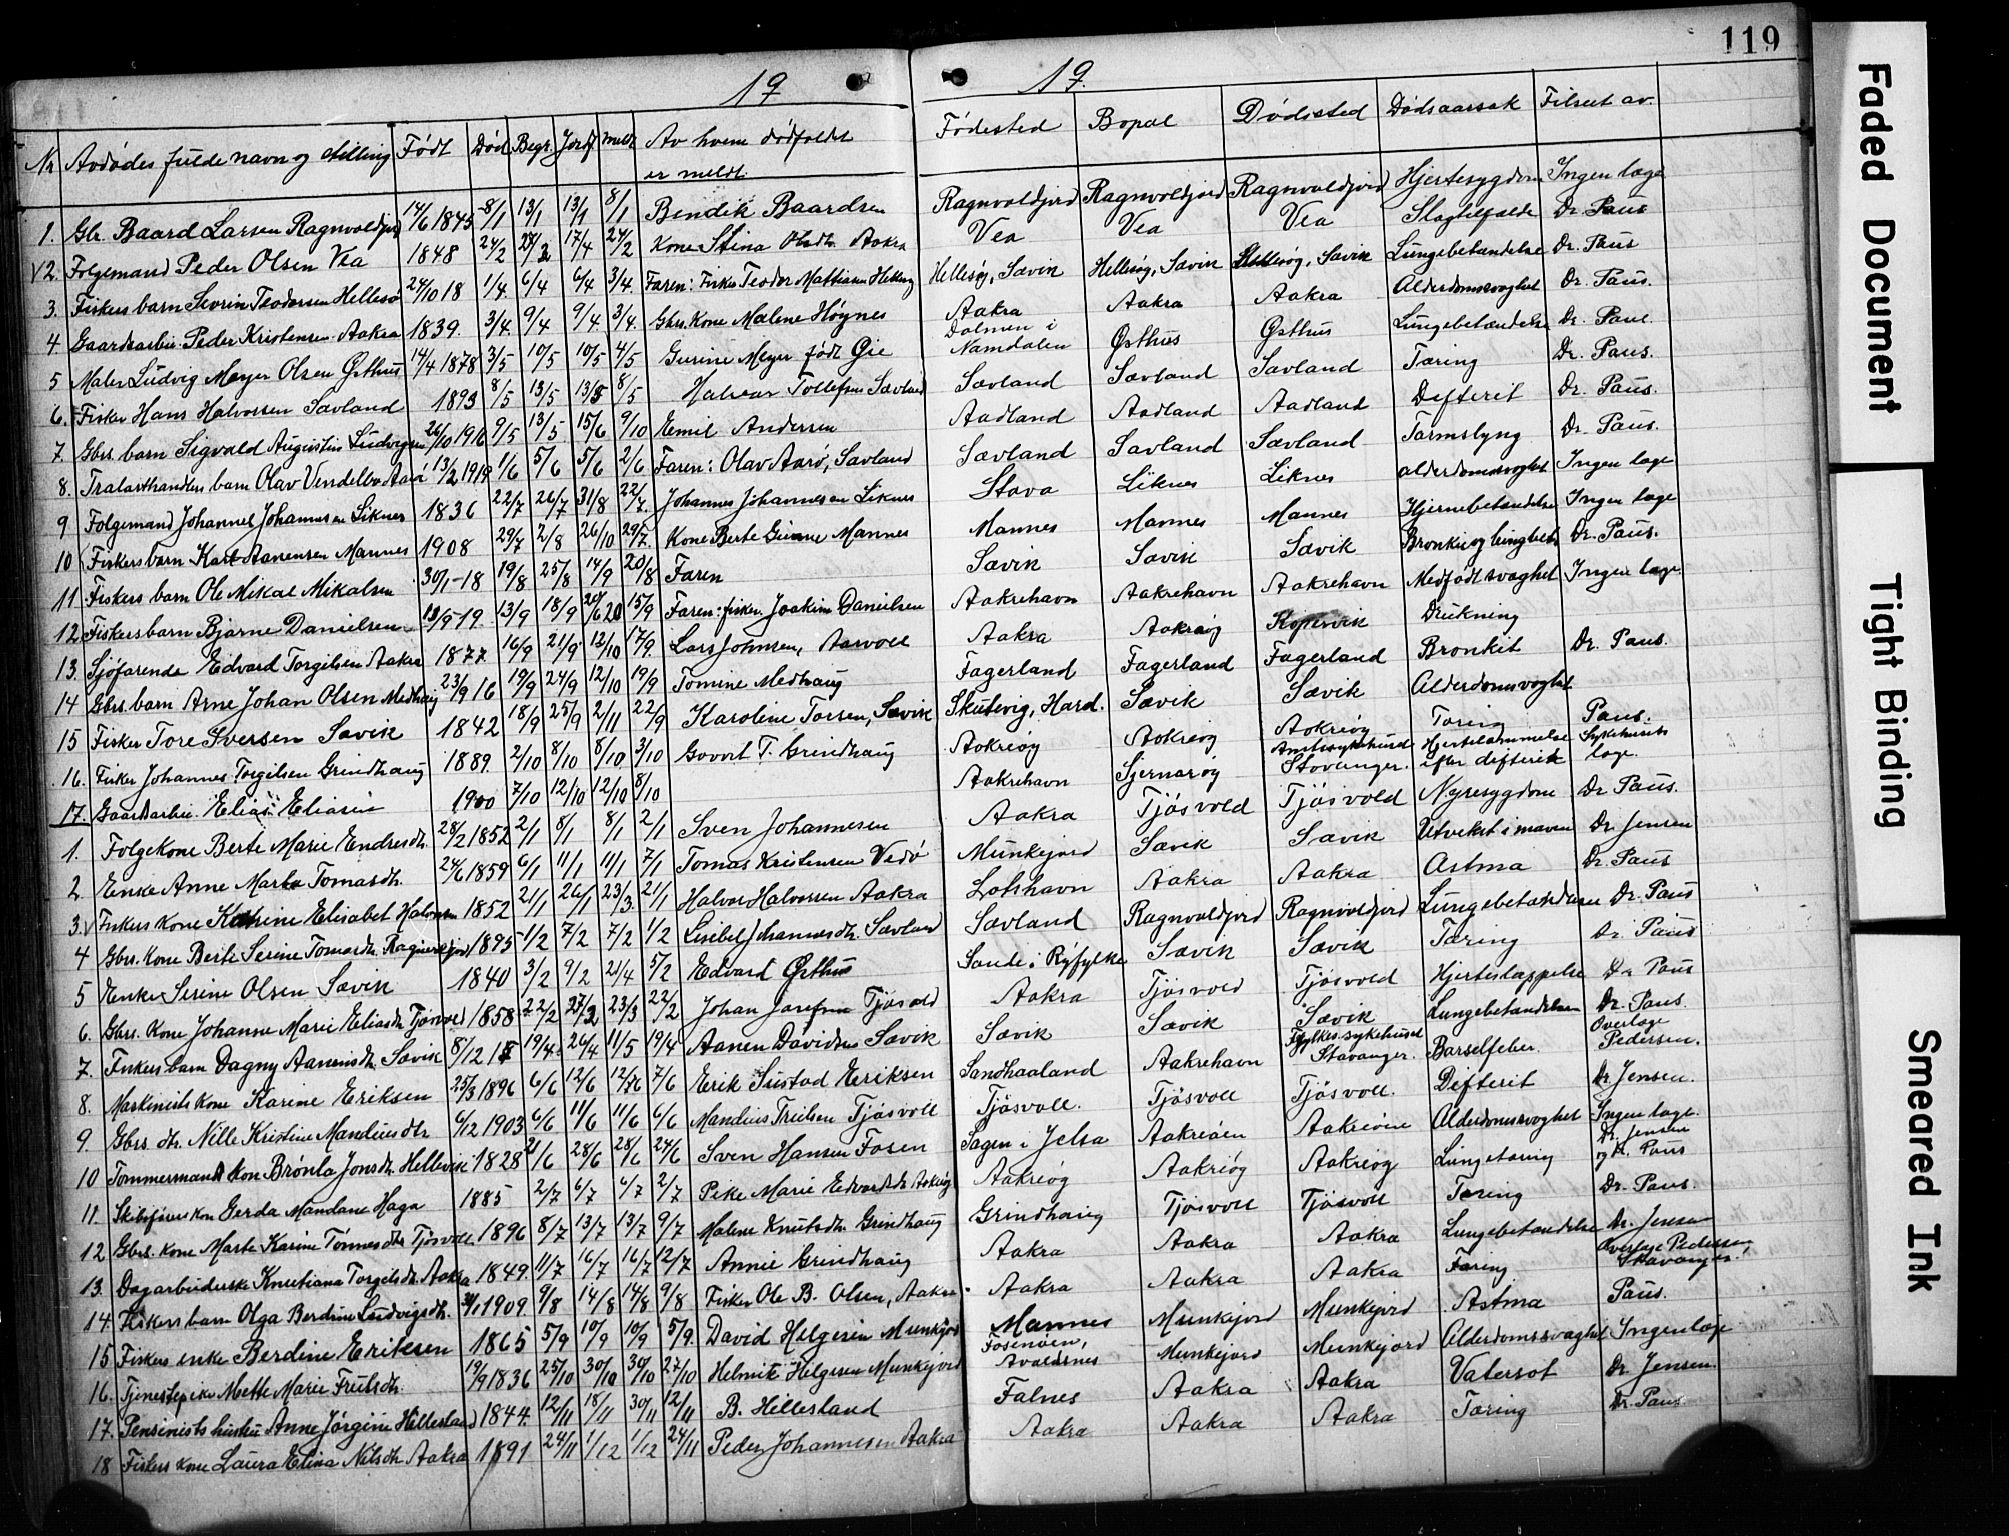 119
19
19.
Nr Avdødes fulde navn og stilling Født Død Begr. Jordf meldt Av hvem dødfaldet er meldt. Fødested Bopæl Dødssted Dødsaarsak Tilseet av.
1. Gbr. Baard Larsen Ragnvaldjord 14/6 1845 8/1 13/1 13/1 8/1 Bendik Baardsen Ragnvaldjord Ragnvoldjord Ragnvaldjord Hjertesygdom Ingen læge
2. Folgemand Peder Olsen Vea 1848 24/2 27/2 17/4 24/2 Kone Stina Olsdtr. Aakra Vea Vea Vea Slagtilfælde Dr. Paus
3. Fiskers barn Sevrin Teodorsen Hellesø 24/10 18 1/4 6/4 6/4 3/4 Faren: Fisker Teodor Mathiasen Hellesøy, Sævik Hellesøy, Sævik Hellesøy, Sævik Lungebetændelse Dr. Paus
4. Gaardsarbei. Peder Kristensen Aakra 1839. 3/4 9/4 9/4 3/4. Gbrs. Kone Malene Høynes Aakra Aakra Aakra Alderdomssvaghet Dr. Paus.
5 Maler Ludvig Meyer Olsen Østhus 14/4 1878 3/5 10/5 10/5 4/5 Gurine Meyer født Øie Dolmen i Namdalen Østhus Østhus Lungebetændelse Dr. Paus
6. Fisker Hans Halvorsen Sævland 1893 8/5 13/5 13/5 8/5 Halvor Tollefsen Sævland Sævland Sævland Sævland Tæring Dr. Paus.
7. Gbrs. barn Sigvald Augustin Ludvigsen 26/10 1916 9/5 13/5 15/6 9/10 Emil Andersen Aadland Aadland Aadland Defterit Dr. Paus.
8. Tralasthandlers barn Olav Vendelbo Aarø 13/2 1919 1/6 5/6 5/6 2/6 Faren: Olav Aarø, Sævland Sævland Sævland Sævland Tarmslyng Dr. Paus.
9 Folgemand Johannes Johannesen Liknes 1836 22/7 26/7 31/8 22/7. Johannes Johannesen Liknes Stava Liknes Liknes alderdomssvaghet Ingen læge
10 Fiskers barn Karl Aanensen Mannes 1908 29/7 2/8 26/10 29/7. Kone Berte Gurine Mannes Mannes Mannes Mannes Hjernebetændelse Ingen læge
11 Fiskers barn Ole Mikal Mikalsen 30/1-18 19/8 25/8 14/9 20/8 Faren Sævik Sævik Sævik Dr. Paus.
12 Fiskers barn Bjarne Danielsen 13/9 19. 13/9 18/9 20/6 20 15/9 Faren: fisker Joakim Danielsen Aakrehavn Aakrehavn Aakrehavn Medfødt svaghet Ingen læge
13. Sjøfarende Edvard Torgilsen Aakra 1877 16/9 21/9 12/10 17/9. Lars Johnsen, Aarvoll Aakra Aakraøy Kopervik Drukning
14 Gbrs. barn Arne Johan Olsen Medhaug 23/9 16 19/9 24/9 12/10 19/9 Tomine Medhaug Fagerland Fagerland Fagerland Bronkit Dr. Paus.
15 Fisker Tore Sversen Sævik 1842 18/9 25/9 2/11 22/9 Karoline Torsen, Sævik Skutevig, Hard. Sævik Sævik Alderdomssvaghet
16. Fisker Johannes Torgilsen Grindhaug 1889. 2/10 8/10 8/10. 3/10 Govert T. Grindhaug Aakreøy Aakreøy Aakreøy Tæring Paus.
17. Gaardarbei. Elias Eliassen 1900 7/10 12/10 12/10 8/10 Aakrehavn Sjernarøy Amtssykehuset Stavanger. Hjertelammelse efter difterit Sykehusets læge.
1. Folgekone Berte Marie Endresdtr. 28/2 1852 2/1 8/1 8/1 2/1 Sven Johannesen Aakra Tjøsvold Tjøsvold Nyresygdom Dr. Paus.
2 Enke Anne Marta Tomasdtr. 24/6 1859 6/1 11/1 11/1 7/1 Tomas Kristensen Vedø Munkejord Sævik Sævik Utvekst i maven Dr. Jensen
3. Fiskers kone Katrine Elisabet Halvorsen 1852 21/1 26/1 23/3. 21/1 Halvor Halvorsen Aakra Lotshavn Aakra Aakra Astma Dr. Paus
4 Gbrs. Kone Berte Serine Tomasdtr. Ragnvaldjord 1895 1/2 7/2 7/2 1/2 Lisebet Johannesdtr. Sævland Sævland Ragnvaldjord Ragnvaldjord Lungebetændelse Dr. Paus
5 Enke Serine Olsen Sævik 1840 3/2 9/2 21/4 5/2 Edvard Østhus Sande i Ryfylke Sævik Sævik Tæring Dr. Paus
6. Gbrs. Kone Johanne Marie Eliasdtr Tjøsvold 1858 22/2 27/2 23/3 22/2 Johan Josefsen Tjøsvold Aakra Tjøsvold Tjøsvold Hjerteslappelse Dr. Paus
7. Fiskers barn Dagny Aanensdtr. Sævik 8/12 18 19/4 26/4 11/5 19/4 Aanen Davidsen Sævik Sævik Sævik Sævik Lungebetændelse Dr. Paus.
8. Maskinists kone Karine Eriksen 25/3 1896 6/6 12/6 12/6 7/6 Erik Sustad Eriksen Sandhaaland Aakrehavn Fylkessykehuset Stavanger. Barselfeber. Overlæge Pedersen.
9 Gbrs. dtr. Nille Kristine Mandiusdtr 6/12 1903 6/6 11/6 11/6 6/6 Mandius Truelsen Tjøsvoll Tjøsvoll. Tjøsvoll Tjøsvoll. Difterit Dr. Jensen.
10 Tommermands kone Brønla Jonsdtr. Hellevik 1828 21/6 28/6 28/6 24/6 Sven Hansen Fosen Sagen i Jelsa Aakreøen Aakreøen Alderdomssvaghet Ingen læge.
11. Skibsførers kone Gerda Mandane Haga 1885 2/7 6/7 6/7 2/7 Pike Marie Edvardsdtr Aakreøy Aakreøy Aakreøy Aakreøy Lungetæring Dr. Jensen og Dr. Paus
12 Gbrs. kone Marte Karine Tønnesdtr Tjøsvoll 1896 8/7 13/7 13/7 9/7 Malene Knutsdtr Grindhaug Grindhaug Tjøsvoll Tjøsvoll Tæring Dr. Paus.
13. Dagarbeiderske Kristiana Torgilsdtr. Aakra 1849. 11/7 16/7 16/7 12/7 Annie Grindhaug Aakra Aakra Aakra Lungebetændelse Dr. Jensen
14. Fiskers barn Olga Berdine Ludvigsdtr. 1909. 9/8 14/8 14/8 9/8 Fisker Ole B. Olsen, Aakra. Aakra Aakra Aakra Tæring Overlæge Pedersen, Stavanger.
15 Fiskers enke Berdine Eriksen 1865 5/9 10/9 10/9 5/9. David Helgesen Munkejord Mannes Munkejord Munkejord Astma Paus.
16. Tjenestepike Mette Marie Fruelsdtr. 19/9 1836 25/10 30/10 30/10 27/10 Helmik Helgesen Munkejord Fosenøen, Avaldsnes Munkejord Munkejord Alderdomssvaghet Ingen læge
17. Pensionists hustru Anne Jørgine Hillesland 1844 12/11 18/11 30/11 12/11 B. Hillesland Falnes Aakra Aakra Vatersot Dr. Jensen.
18 Fiskers kone Laura Elina Nilsdtr Aakra 1891 24/11 1/12 1/12 24/11 Peder Johannesen Aakra Aakra Aakra Aakra Tæring Dr. Paus
Faded Document
Tight Binding
Smeared Ink